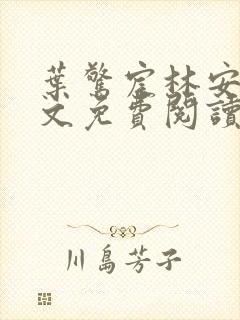 葉驚宦林安
文免費閱讀
川島芳子